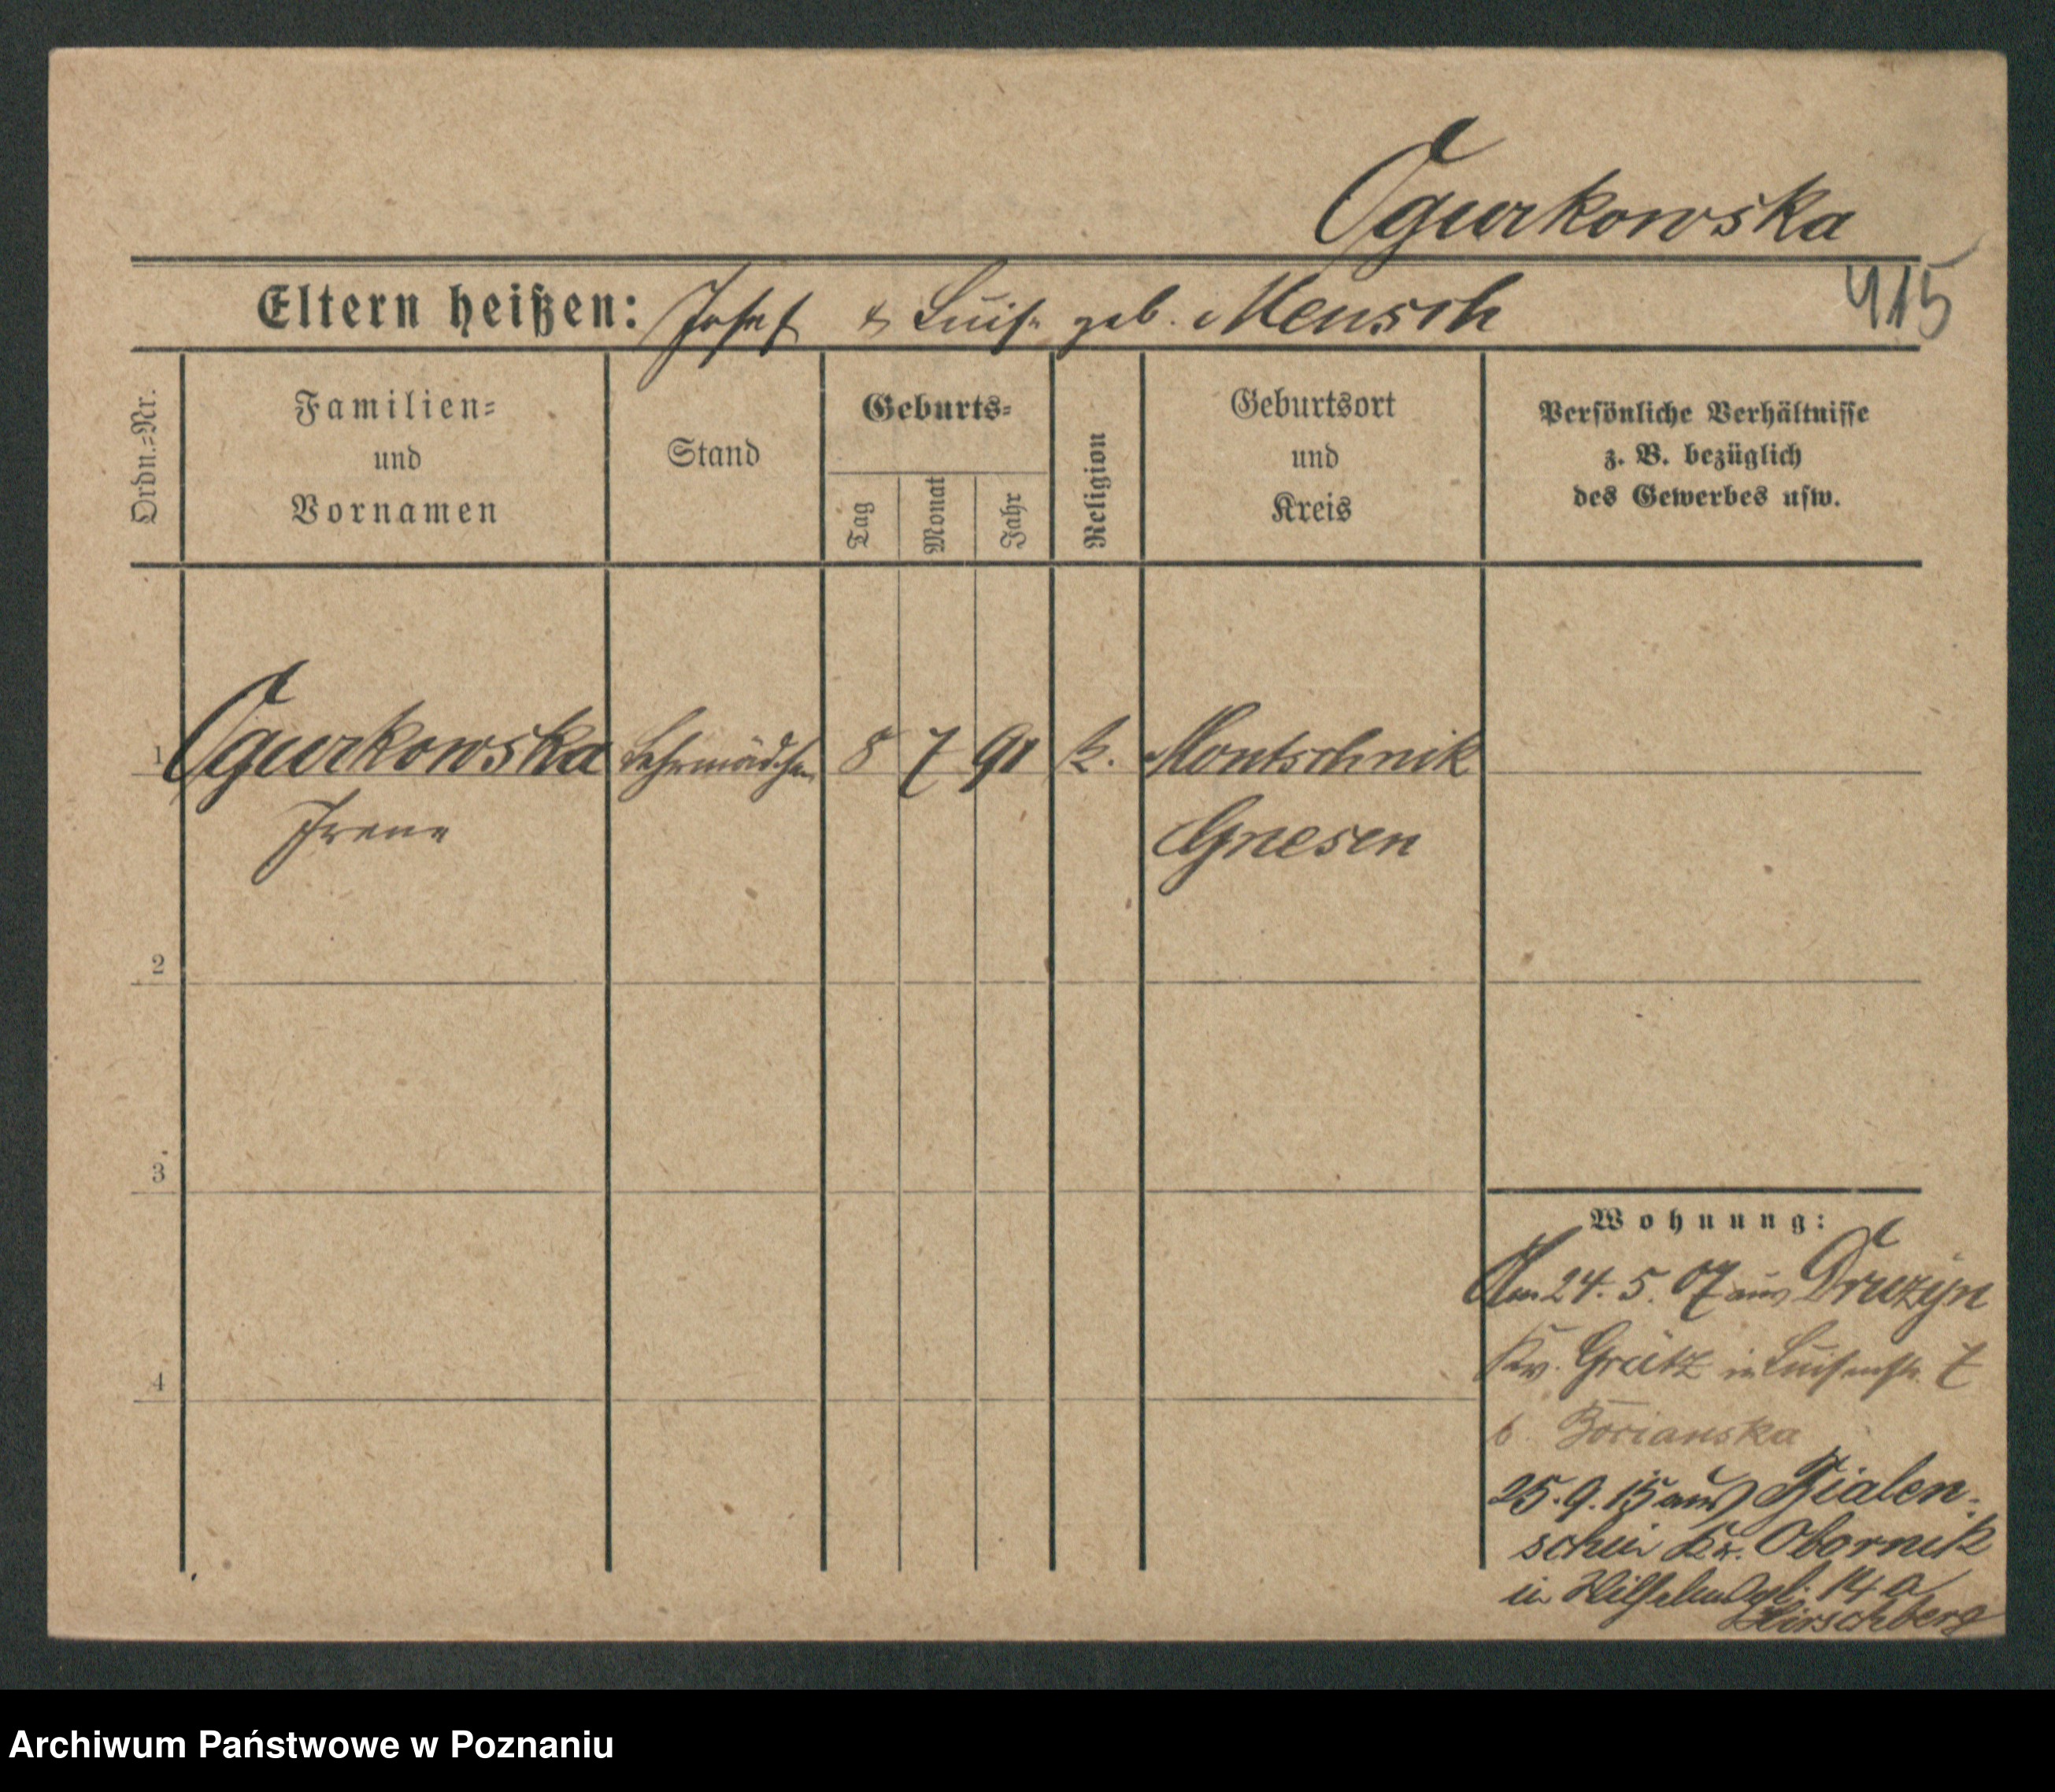 Ogurkowska
915
Eltern heißen: Josef & Luise geb. Mensch
Ordn.=Nr.
Familien=
und
Vornamen
Stand
Geburts=
Tag
Monat
Jahr
Religion
Geburtsort
und
Kreis
Persönliche Verhältnisse
z. B. bezüglich
des Gewerbes usw.
1 Ogurkowska Lehrmädchen 8 7 91 k. Montschnik
Irene Gnesen
2
3
4
Wohnung:
Am 24. 5. 07 aus Druzyn
Kr. Grätz in Luisenstr. 7
b. Borianska
25. 9. 15 aus Bialen-
schin Kr. Obornik
in 14a
Hirschberg
Archiwum Państwowe w Poznaniu